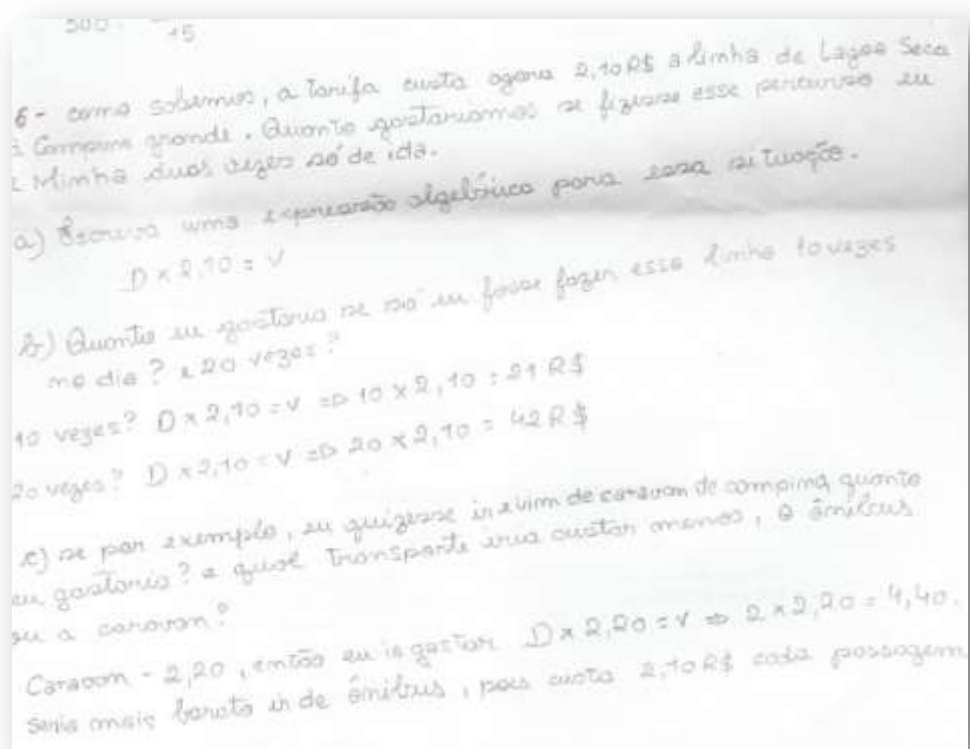 500. 15
6 - como sabemos, a tarifa custa agora 2,10 R$ a linha de Lagoa Seca
à Campina grande. Quanto gastariamos se fizesse esse percurso eu
e Minha duas vezes só de ida.
a) Escreva uma expressão algébrica para essa situação.
D x 2,10 = V
b) Quanto eu gastaria se só eu fosse fazer essa linha 10 vezes
no dia? e 20 vezes?
10 vezes? D x 2,10 = V => 10 x 2,10 = 21 R$
20 vezes? D x 2,10 = V => 20 x 2,10 = 42 R$
c) se por exemplo, eu quizesse ir e vim de caravan de campina quanto
eu gastaria? e qual transporte iria custar menos, o ônibus
ou a caravan?
Caravan - 2,20, então eu ia gastar D x 2,20 = V => 2 x 2,20 = 4,40.
seria mais barato ir de ônibus, pois custa 2,10 R$ cada passagem